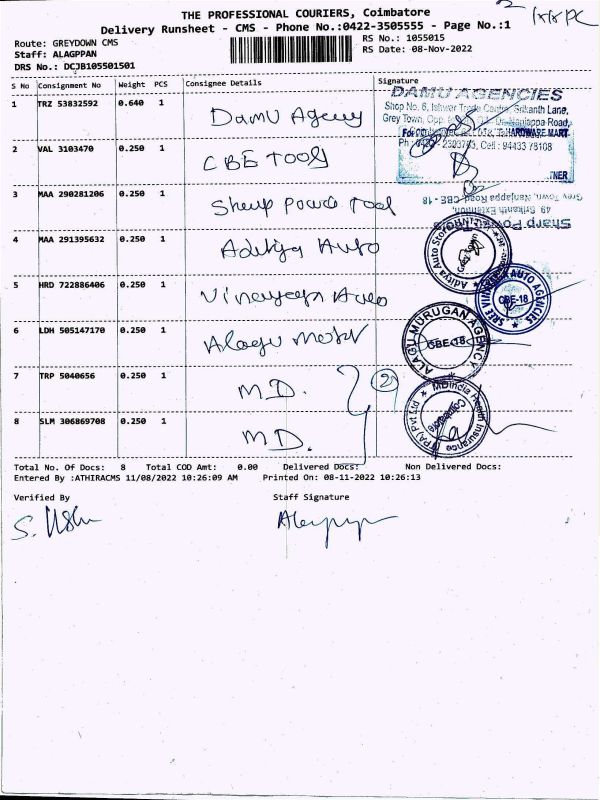 THE PROFESSIONAL COURIERS, Coimbatore
Delivery Runsheet - CMS - Phone No.:0422-3505555 - Page No.:1
Route: GREYDOWN CMS
RS No.: 1055015
Staff: ALAGPPAN
RS Date: 08-Nov-2022
DRS No.: DCJB105501501
S No Consignment No Weight PCS Consignee Details Signature
1 TRZ 53832592 0.640 1 Damu Agency
2 VAL 3103470 0.250 1 CBE TOOLS
3 MAA 290281206 0.250 1 Tool
4 MAA 291395632 0.250 1 Aditya Auto
5 HRD 722886406 0.250 1 Vinayaga Auto
6 LDH 505147170 0.250 1 Alagu
7 TRP 5040656 0.250 1 M.D.
8 SLM 306869708 0.250 1 M.D.
2
DAMU AGENCIES
Shop No. 6, Ishwar Trade Centre, Srikanth Lane,
Grey Town, Opp. Nanjappa Road,
For HARDWARE MART
Cell : 94433 78108
Sharp Power Tools
49 Srikanth Extention,
Grey Town, Nanjappa Road, CBE - 18
Aditya Auto Stores
Grey Town
SREE VINAYAGA AUTO AGENCIES
CBE-18
ALAGU MURUGAN AGENCY
CBE-18
MDIndia Health Insurance (TPA) Pvt Ltd
Coimbatore
Total No. Of Docs: 8 Total COD Amt: 0.00 Delivered Docs: Non Delivered Docs:
Entered By :ATHIRACMS 11/08/2022 10:26:09 AM Printed On: 08-11-2022 10:26:13
Verified By Staff Signature